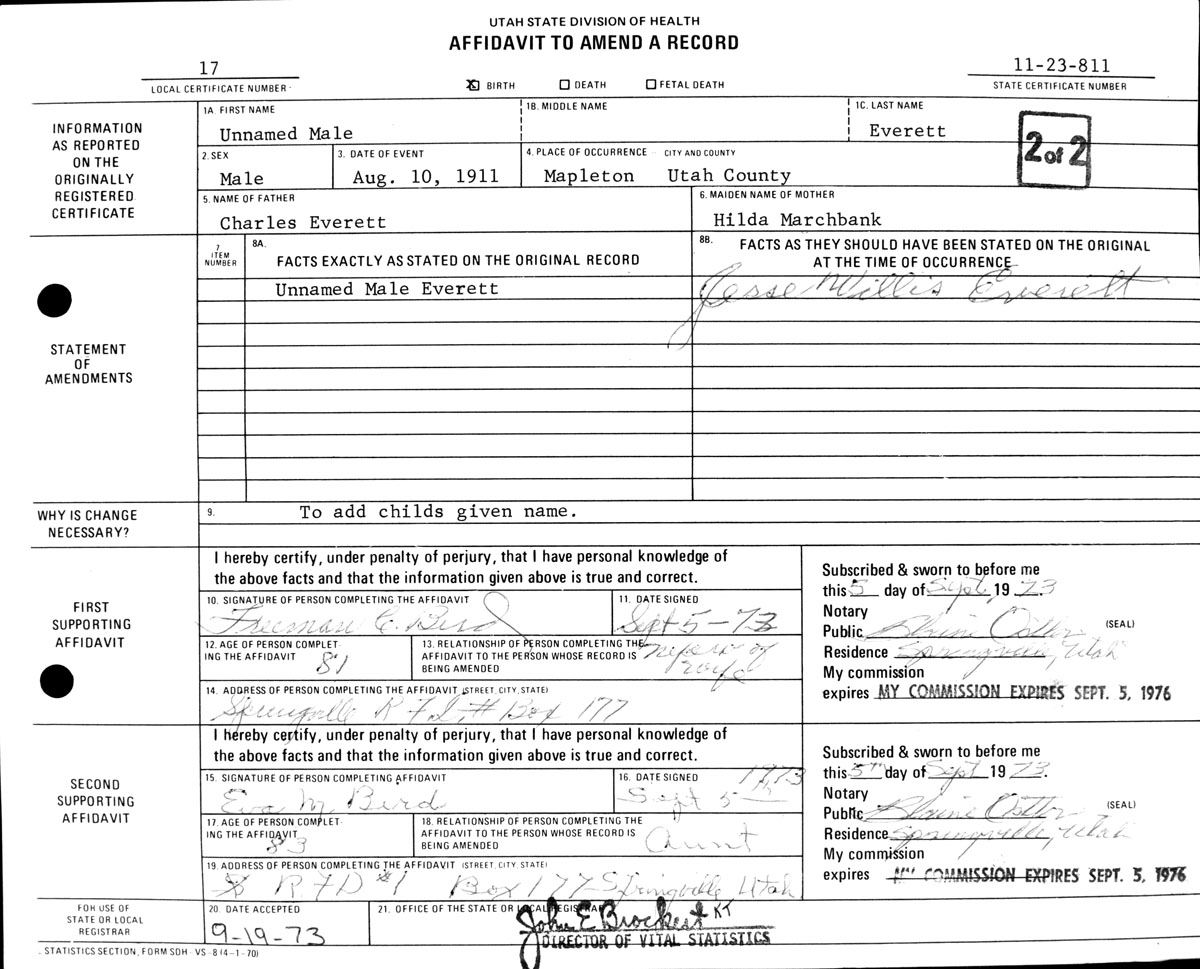 UTAH STATE DIVISION OF HEALTH
AFFIDAVIT TO AMEND A RECORD
17
LOCAL CERTIFICATE NUMBER
X BIRTH DEATH FETAL DEATH
11-23-811
STATE CERTIFICATE NUMBER
INFORMATION
AS REPORTED
ON THE
ORIGINALLY
REGISTERED
CERTIFICATE
1A. FIRST NAME
Unnamed Male
1B. MIDDLE NAME
1C. LAST NAME
Everett
2 of 2
2. SEX
Male
3. DATE OF EVENT
Aug. 10, 1911
4. PLACE OF OCCURRENCE CITY AND COUNTY
Mapleton Utah County
5. NAME OF FATHER
Charles Everett
6. MAIDEN NAME OF MOTHER
Hilda Marchbank
STATEMENT
OF
AMENDMENTS
7
ITEM
NUMBER
8A.
FACTS EXACTLY AS STATED ON THE ORIGINAL RECORD
8B. FACTS AS THEY SHOULD HAVE BEEN STATED ON THE ORIGINAL
AT THE TIME OF OCCURRENCE
Unnamed Male Everett
Jesse Willis Everett
WHY IS CHANGE
NECESSARY?
9. To add childs given name.
FIRST
SUPPORTING
AFFIDAVIT
I hereby certify, under penalty of perjury, that I have personal knowledge of
the above facts and that the information given above is true and correct.
10. SIGNATURE OF PERSON COMPLETING THE AFFIDAVIT
Freeman C. Bird
11. DATE SIGNED
Sept 5-73
12. AGE OF PERSON COMPLET-
ING THE AFFIDAVIT
81
13. RELATIONSHIP OF PERSON COMPLETING THE
AFFIDAVIT TO THE PERSON WHOSE RECORD IS
BEING AMENDED
of
wife
14. ADDRESS OF PERSON COMPLETING THE AFFIDAVIT (STREET, CITY, STATE)
Springville R F D # Box 177
Subscribed & sworn to before me
this 5 day of Sept, 19 73
Notary
Public (SEAL)
Residence Springville, Utah
My commission
expires MY COMMISSION EXPIRES SEPT. 5, 1976
SECOND
SUPPORTING
AFFIDAVIT
I hereby certify, under penalty of perjury, that I have personal knowledge of
the above facts and that the information given above is true and correct.
15. SIGNATURE OF PERSON COMPLETING AFFIDAVIT
Eva M. Bird
16. DATE SIGNED
1973
Sept 5
17. AGE OF PERSON COMPLET-
ING THE AFFIDAVIT
83
18. RELATIONSHIP OF PERSON COMPLETING THE
AFFIDAVIT TO THE PERSON WHOSE RECORD IS
BEING AMENDED
Aunt
19. ADDRESS OF PERSON COMPLETING THE AFFIDAVIT (STREET, CITY, STATE)
R F D #1 Box 177 Springville Utah
Subscribed & sworn to before me
this 5th day of Sept 19 73.
Notary
Public (SEAL)
Residence Springville, Utah
My commission
expires MY COMMISSION EXPIRES SEPT. 5, 1976
FOR USE OF
STATE OR LOCAL
REGISTRAR
20. DATE ACCEPTED
9-19-73
21. OFFICE OF THE STATE OR LOCAL REGISTRAR
John E Brockert KT
DIRECTOR OF VITAL STATISTICS
STATISTICS SECTION, FORM SDH - VS - 8 (4-1-70)